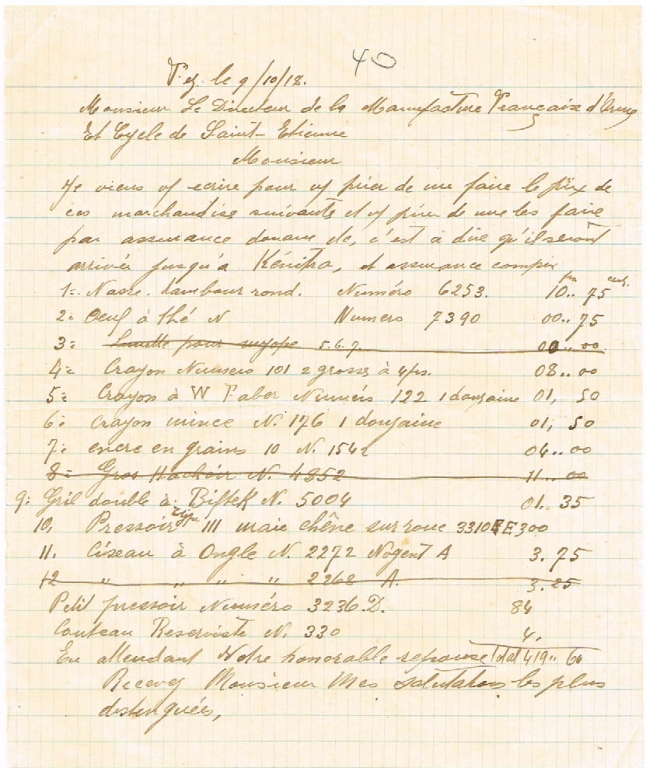 40
Fez le 9/10/18.
Monsieur Le Directeur de la Manufacture Française d'Armes
Et Cycle de Saint-Etienne
Monsieur
Je viens vs ecrire pour vs prier de me faire le prix de
ces marchandise suivante et vs prier de me les faire
par assurance douane etc, c'est à dire qu'il seront
arrivés jusqu'a Kénitra, et assurance compris
1= Nasse tambour rond. Numéro 6253. 10.. 75
2= Oeuf à thé N Numero 7390 00.. 75
3= Lunette pour myope 5.6.7. 00..00
4= Crayon Numero 101 2 grosses à 4 frs. 08..00
5= Crayon à W Faber Numéro 122 1 douzaine 01, 50
6= crayon mince N. 176 1 douzaine 01, 50
7= encre en grains 10 N. 1542 04..00
8= Gros Hachoir N. 4852 11..00
9= Gril double à Biftek N. 5004 01. 35
10, Pressoir type III maie chêne sur roue 3310 E 300
11. Ciseau à Ongle N. 2272 Nogent A 3. 75
12 " " " " 2262 A. 3.25
Petit pressoir Numéro 3236.D. 84
Couteau Reserviste N. 330 4.
En attendant Votre honorable reponse Total 419.. 60
Recevez Monsieur Mes salutations les plus
distenguées,